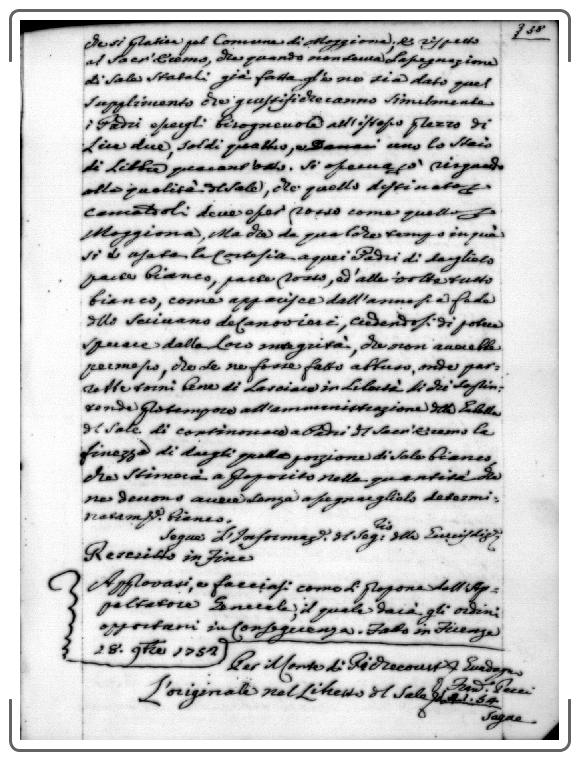 338
che si pratica pel Comune di Moggiona, e rispetto
al Sacr'Eremo, che quando non senza l'assegnazione
di Sale Statali già fatta gl'e ne sia dato quel
supplimento che giustificheranno Similmente
i Padri essergli bisognevole all'istesso prezzo di
Lire due, soldi quattro, e Denari uno lo Staio
di Libbre quarant'otto. Si osserva riguardo
alla qualità del Sale, che quello destinato
Camaldoli deve esser rosso come quello
Moggiona, Ma che da qualche tempo in quà
si è usata la Cortesia a quei Padri di darglielo
parte bianco, parte rosso, ed alle volte tutto
bianco, come apparisce dall'annessa fede
dello Scrivano de Canovieri, credendosi di potere
sperare dalla loro integrità, che non averebbe
permesso, che se ne fosse fatto abuso, onde par-
rebbe tornar bene di Lasciare in Libertà di chi Soprin-
tende pro tempore all'amministrazione della Gabella
del Sale di continuare a Padri del Sacr'Eremo la
finezza di dargli quella porzione di Sale bianco
che Stimerà a proposito nella quantità che
ne devono avere senza assegnarglielo determi-
natam.te bianco,
Segue l'Informaz.e del Seg.rio delle
Rescritto in fine
Approvasi, e facciasi come si propone dall'Ap-
paltatore Generale, il quale darà gli ordini
opportuni in Conseguenza. Dato in Firenze
28. 9bre 1752
Per il Conte di Richecourt
L'originale nel Libretto del Sale 54
Segue